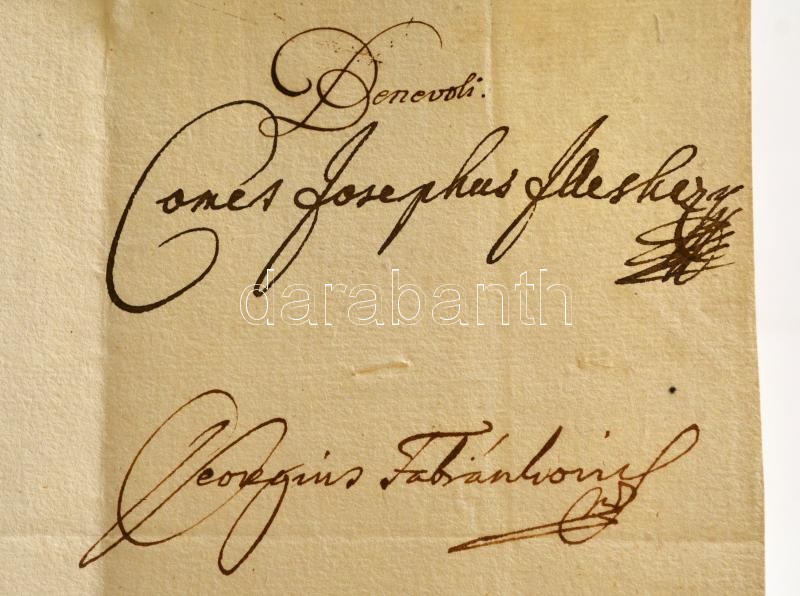 Benevoli.
Comes Josephus Jlleshazy
darabanth
Georgius Fabiánkovics